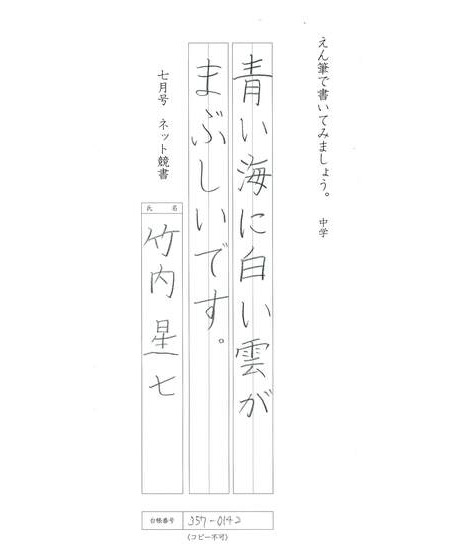 えん筆で書いてみましょう。 中学
青い海に白い雲が
まぶしいです。
七月号 ネット競書
氏名
竹内星七
台帳番号 357-0142
(コピー不可)